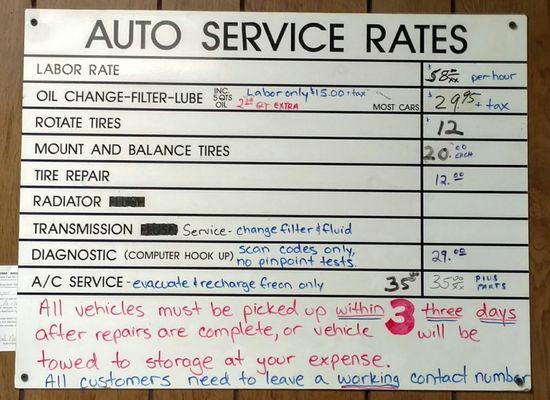 AUTO SERVICE RATES
LABOR RATE $58.00/xx per-hour
OIL CHANGE-FILTER-LUBE INC. 5 QTS OIL Labor only $15.00+tax MOST CARS $29.95 + tax
2.00 QT EXTRA
ROTATE TIRES $12
MOUNT AND BALANCE TIRES 20.00 EACH
TIRE REPAIR 12.00
RADIATOR
TRANSMISSION Service - change filter & fluid
DIAGNOSTIC (COMPUTER HOOK UP) scan codes only, 29.00
no pinpoint tests.
A/C SERVICE - evacuate & recharge freon only 35.00 35.00/xx PLUS PARTS
All vehicles must be picked up within 3 three days
after repairs are complete, or vehicle will be
towed to storage at your expense.
All customers need to leave a working contact number